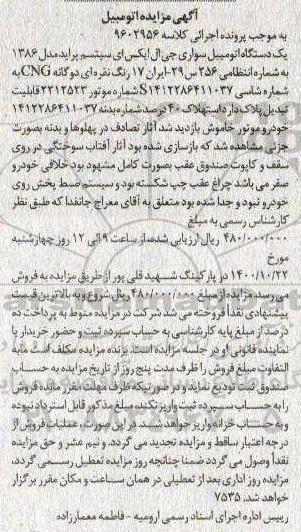 آگهی مزایده اتومبیل
به موجب پرونده اجرائی کلاسه ۹۶۰۲۹۵۶
یک دستگاه اتومبیل سواری جی ال ایکس ای سیستم پراید مدل ۱۳۸۶
به شماره انتظامی ۲۵۶ س ۲۹-ایران ۱۷ رنگ نقره ای دوگانه CNG به
شماره شاسی S۱۴۱۲۲۸۶۴۱۱۰۳۷ شماره موتور ۲۲۱۲۵۲۳ قابلیت
تبدیل پلاک دار استهلاک ۴۰ درصد شماره بدنه ۱۴۱۲۲۸۶۴۱۱۰۳۷
خودرو موتور خاموش بازدید شد آثار تصادف در پهلوها و بدنه بصورت
جزئی مشاهده شد که بازسازی شده بود آثار آفتاب سوختگی در روی
سقف و کاپوت صندوق عقب بصورت کامل مشهود بود خلافی خودرو
صفر می باشد چراغ عقب چپ شکسته بود و سیستم ضبط پخش روی
خودرو نبود و جدا شده بود متعلق به آقای معراج جانفدا که طبق نظر
کارشناس رسمی به مبلغ
۴۸۰/۰۰۰/۰۰۰ ریال ارزیابی شده، از ساعت ۹ الی ۱۲ روز چهارشنبه
مورخ
۱۴۰۰/۱۰/۲۲ در پارکینگ شهید قلی پور از طریق مزایده به فروش
می رسد. مزایده از مبلغ ۴۸۰/۰۰۰/۰۰۰ ریال شروع و به بالاترین قیمت
پیشنهادی نقداً فروخته می شد شرکت در مزایده منوط به پرداخت ده
درصد از مبلغ پایه کارشناسی به حساب سپرده ثبت و حضور خریدار یا
نماینده قانونی او در جلسه مزایده است. برنده مزایده مکلف است مابه
التفاوت مبلغ فروش را ظرف مدت پنج روز از تاریخ مزایده به حساب
صندوق ثبت تودیع نماید و در صورتیکه ظرف مهلت مقرر مانده فروش
را به حساب سپرده ثبت واریز نکند، مبلغ مذکور قابل استرداد نبوده
و به حساب خزانه واریز خواهد شد. در این صورت، عملیات فروش از
درجه اعتبار ساقط و مزایده تجدید می گردد. و نیم عشر و حق مزایده
نقداً وصول می گردد ضمنا چنانچه روز مزایده تعطیل رسمی گردد،
مزایده روز اداری بعد از تعطیلی در همان ساعت و مکان مقرر برگزار
خواهد شد. ۷۵۳۵
رییس اداره اجرای اسناد رسمی ارومیه - فاطمه معمارزاده